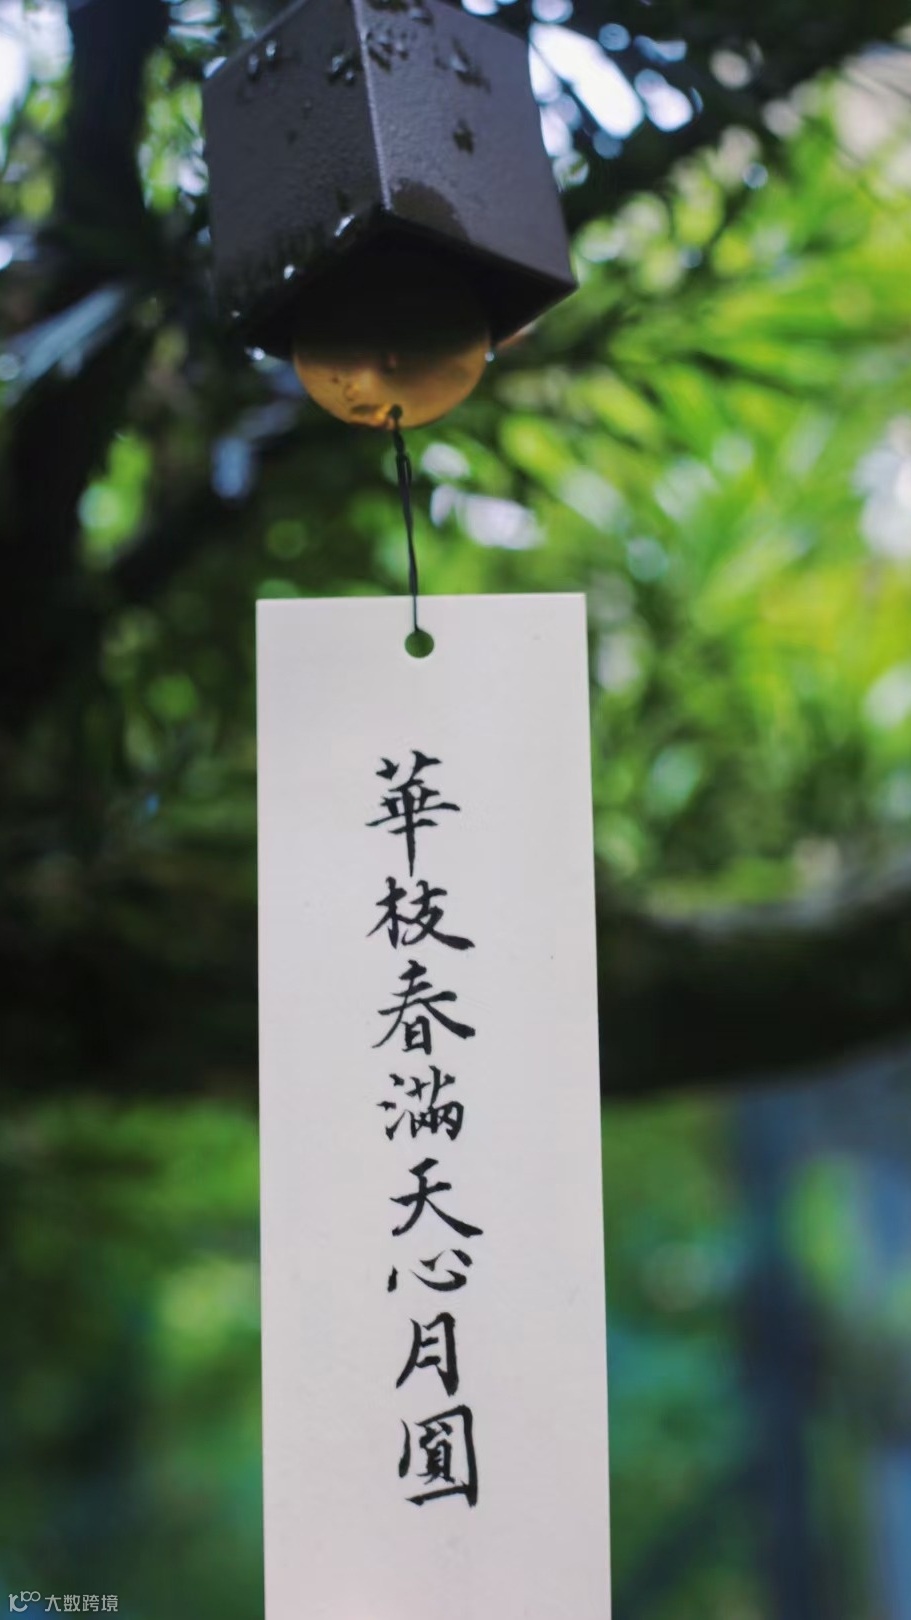 華枝春滿天心月圓
大数跨境